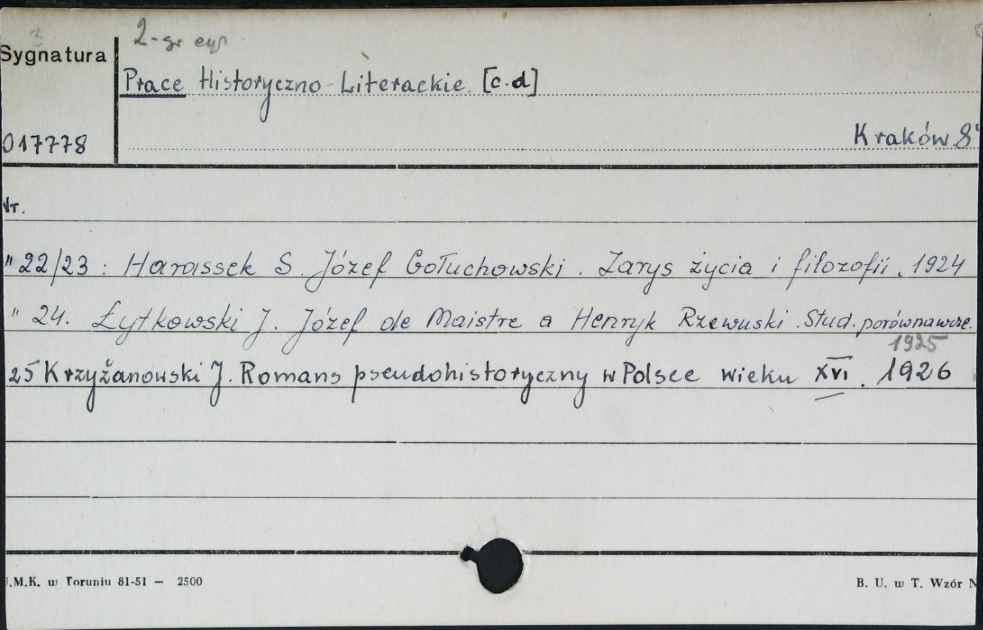 2-gr egz
Sygnatura
Prace Historyczno-Literackie. [c.d]
017778
Kraków 8°
Nr.
" 22/23 : Harassek S. Józef Gołuchowski. Zarys życia i filozofii. 1924
" 24. Żytkowski J. Józef de Maistre a Henryk Rzewuski. Stud. porównawcze.
1925
25 Krzyżanowski J. Romans pseudohistoryczny w Polsce wieku XVI. 1926
.M.K. w Toruniu 81-51 — 2500
B. U. w T. Wzór N